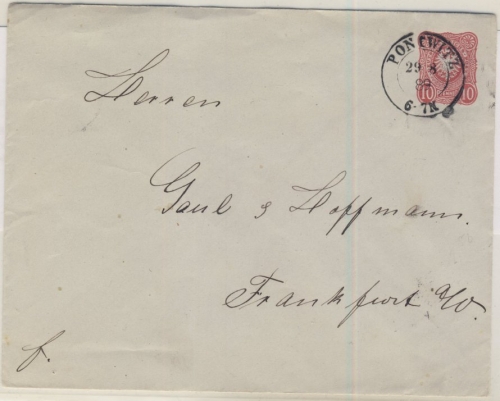 PONITWITZ
29 8
88
6-7N
10 10
Herren
Gaul & Hoffmann.
Frankfurt a/O.
f.